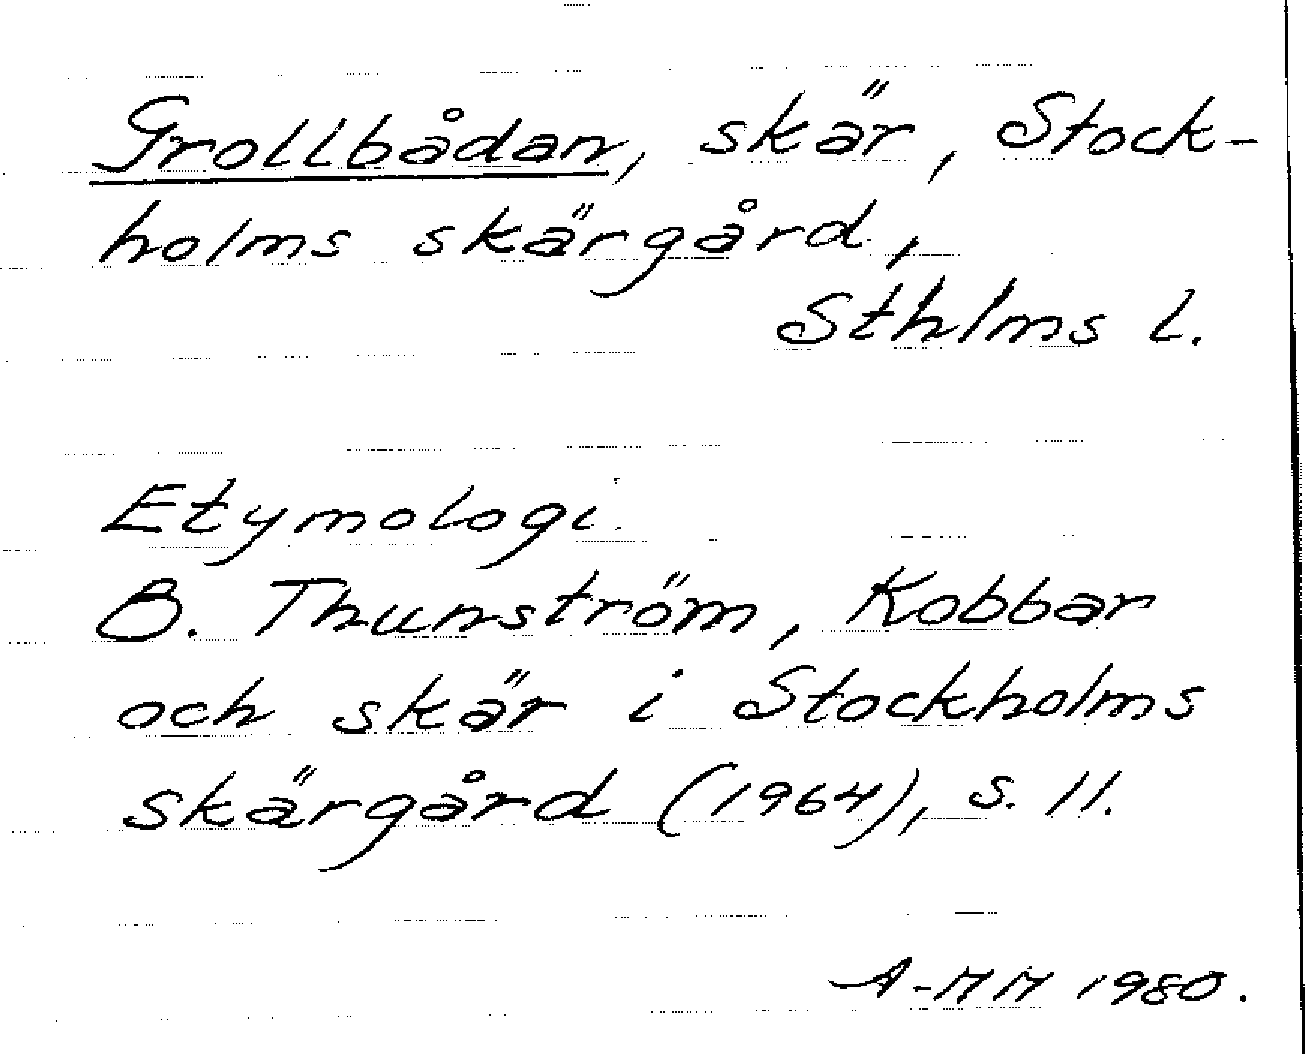 Grollbådan, skär, Stock-
holms skärgård,
Sthlms l.
Etymologi.
B. Thunström, Kobbar
och skär i Stockholms
skärgård (1964), s. 11.
A-MM 1980.